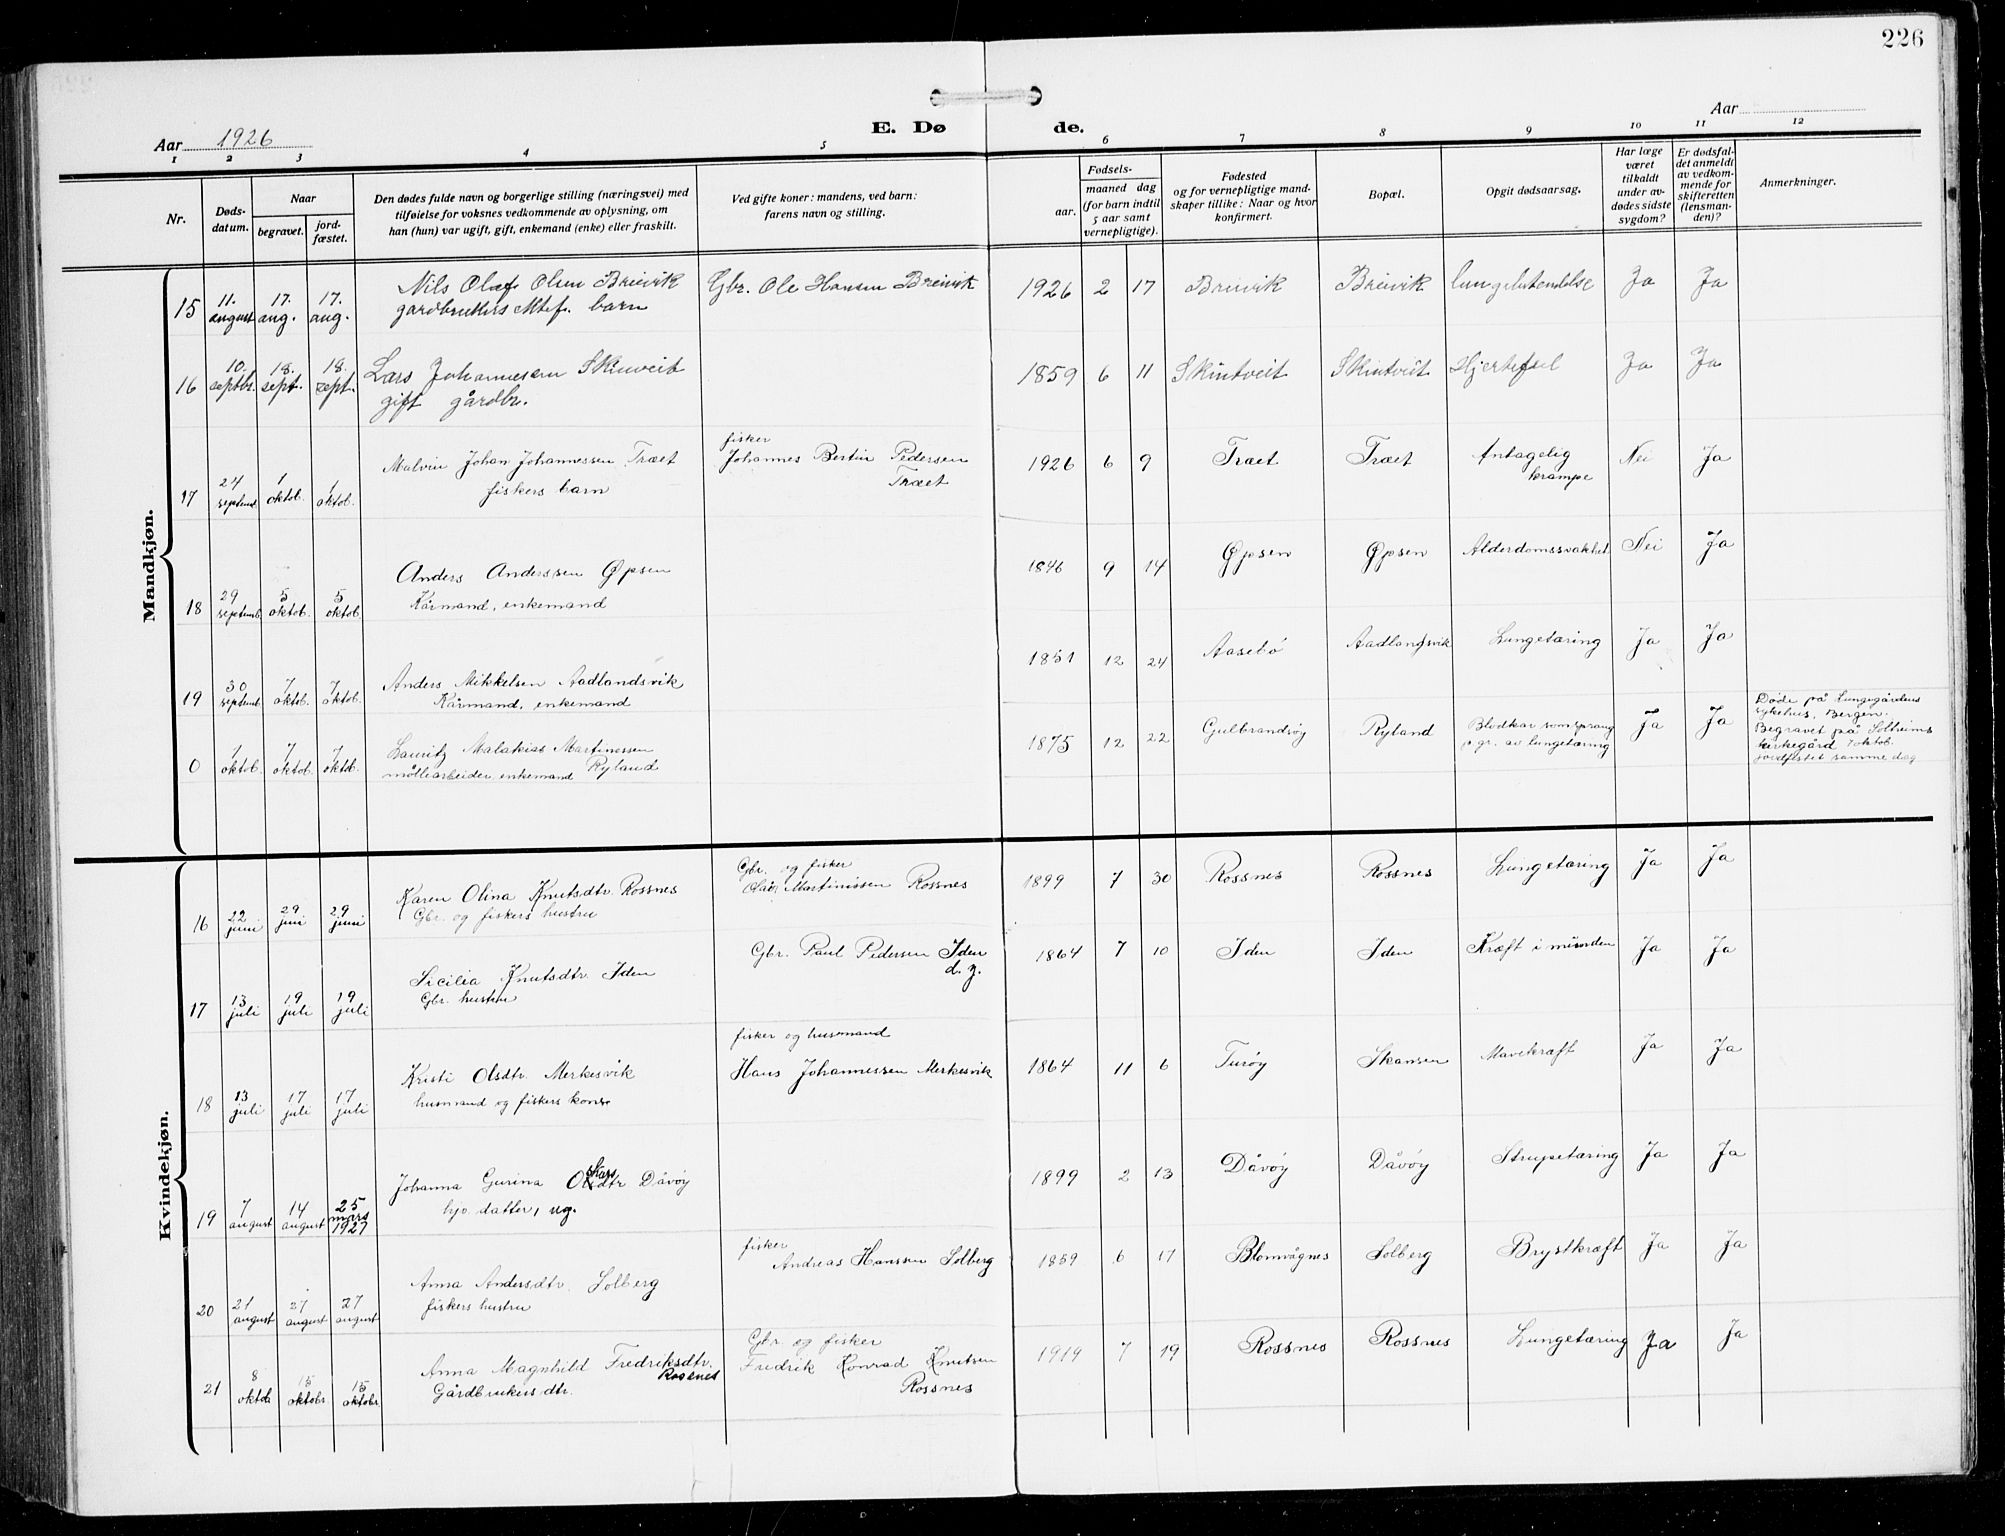 226
Aar 1926
E. Dø de.
Aar
1 2 3 4 5 6 7 8 9 10 11 12
Nr.
Døds-
datum.
Naar
begravet.
jord-
fæstet.
Den dødes fulde navn og borgerlige stilling (næringsvei) med
tilføielse for voksnes vedkommende av oplysning, om
han (hun) var ugift, gift, enkemand (enke) eller fraskilt.
Ved gifte koner: mandens, ved barn:
farens navn og stilling.
Fødsels-
aar.
maaned dag
(for barn indtil
5 aar samt
vernepligtige).
Fødested
og for vernepligtige mand-
skaper tillike: Naar og hvor
konfirmert.
Bopæl.
Opgit dødsaarsag.
Har læge
været
tilkaldt
under av-
dødes sidste
sygdom?
Er dødsfal-
det anmeldt
av vedkom-
mende for
skifteretten
(lensman-
den)?
Anmerkninger.
Mandkjøn.
15 11. august 17. aug. 17. aug.
Nils Olaf Olsen Breivik
gardbrukers barn
Gbr. Ole Hansen Breivik
1926 2 17 Breivik Breivik Lungebetendelse Ja Ja
16 10. septbr. 18. sept. 18. sept.
Lars Johannesen Skintveit
gift gårdbr.
1859 6 11 Skintveit Skintveit Hjertefeil Ja Ja
17 24 septemb. 1 oktob. 1 oktob.
Malvin Johan Johannessen Træet
fiskers barn
fisker
Johannes Bertin Pedersen
Træet
1926 6 9 Træet Træet Antagelig
krampe
Nei Ja
18 29 septemb. 5 oktob. 5 oktob.
Anders Anderssen Øpsen
Kårmand, enkemand
1846 9 14 Øpsen Øpsen Alderdomssvakhet Nei Ja
19 30 septemb. 7 oktob. 7 oktob.
Anders Mikkelsen Aadlandsvik
Kårmand, enkemand
1851 12 24 Aasebø Aadlandsvik Lungetæring Ja Ja
0 1 oktob. 7 oktob. 7 oktob.
Lauritz Malakias Martinessen
møllearbeider enkemand Ryland
1875 12 22 Gulbrandsøy Ryland Blodkar som sprang
p. gr. av lungetæring
Ja Ja
Døde på Lungegårdens
sykehus, Bergen.
Begravet på Solheims
kirkegård 7 oktob.
Jordfestet samme dag
Kvindekjøn.
16 22 juni 29 juni 29 juni
Karen Olina Knutsdtr. Rossnes
Gbr. og fiskers hustru
Gbr. og fisker
Martinissen Rossnes
1899 7 30 Rossnes Rossnes Lungetæring Ja Ja
17 13 juli 19 juli 19 juli
Sicilia Knutsdtr. Iden
Gbr. hustru
Gbr. Paul Pedersen Iden
d. y.
1864 7 10 Iden Iden Kræft i munden Ja Ja
18 13 juli 17 juli 17 juli
Kristi Olsdtr. Merkesvik
husmand og fiskers kone
fisker og husmand
Hans Johannessen Merkesvik
1864 11 6 Turøy Skansen Mavekræft Ja Ja
19 7 august 14 august 25 mars 1927
Johanna Gurina Oskarsdtr Dåvøy
hjv. datter, ug.
1899 2 13 Dåvøy Dåvøy Strupetæring Ja Ja
20 21 august 27 august 27 august
Anna Andersdtr. Solberg
fiskers hustru
fisker
Andreas Hanssen Solberg
1859 6 17 Blomvågnes Solberg Brystkræft Ja Ja
21 8 oktob 15 oktobr. 15 oktobr.
Anna Magnhild Fredriksdtr.
Rossnes
Gårdbrukers dtr.
Gbr. og fisker
Fredrik Konrad Knutsen
Rossnes
1919 7 19 Rossnes Rossnes Lungetæring Ja Ja